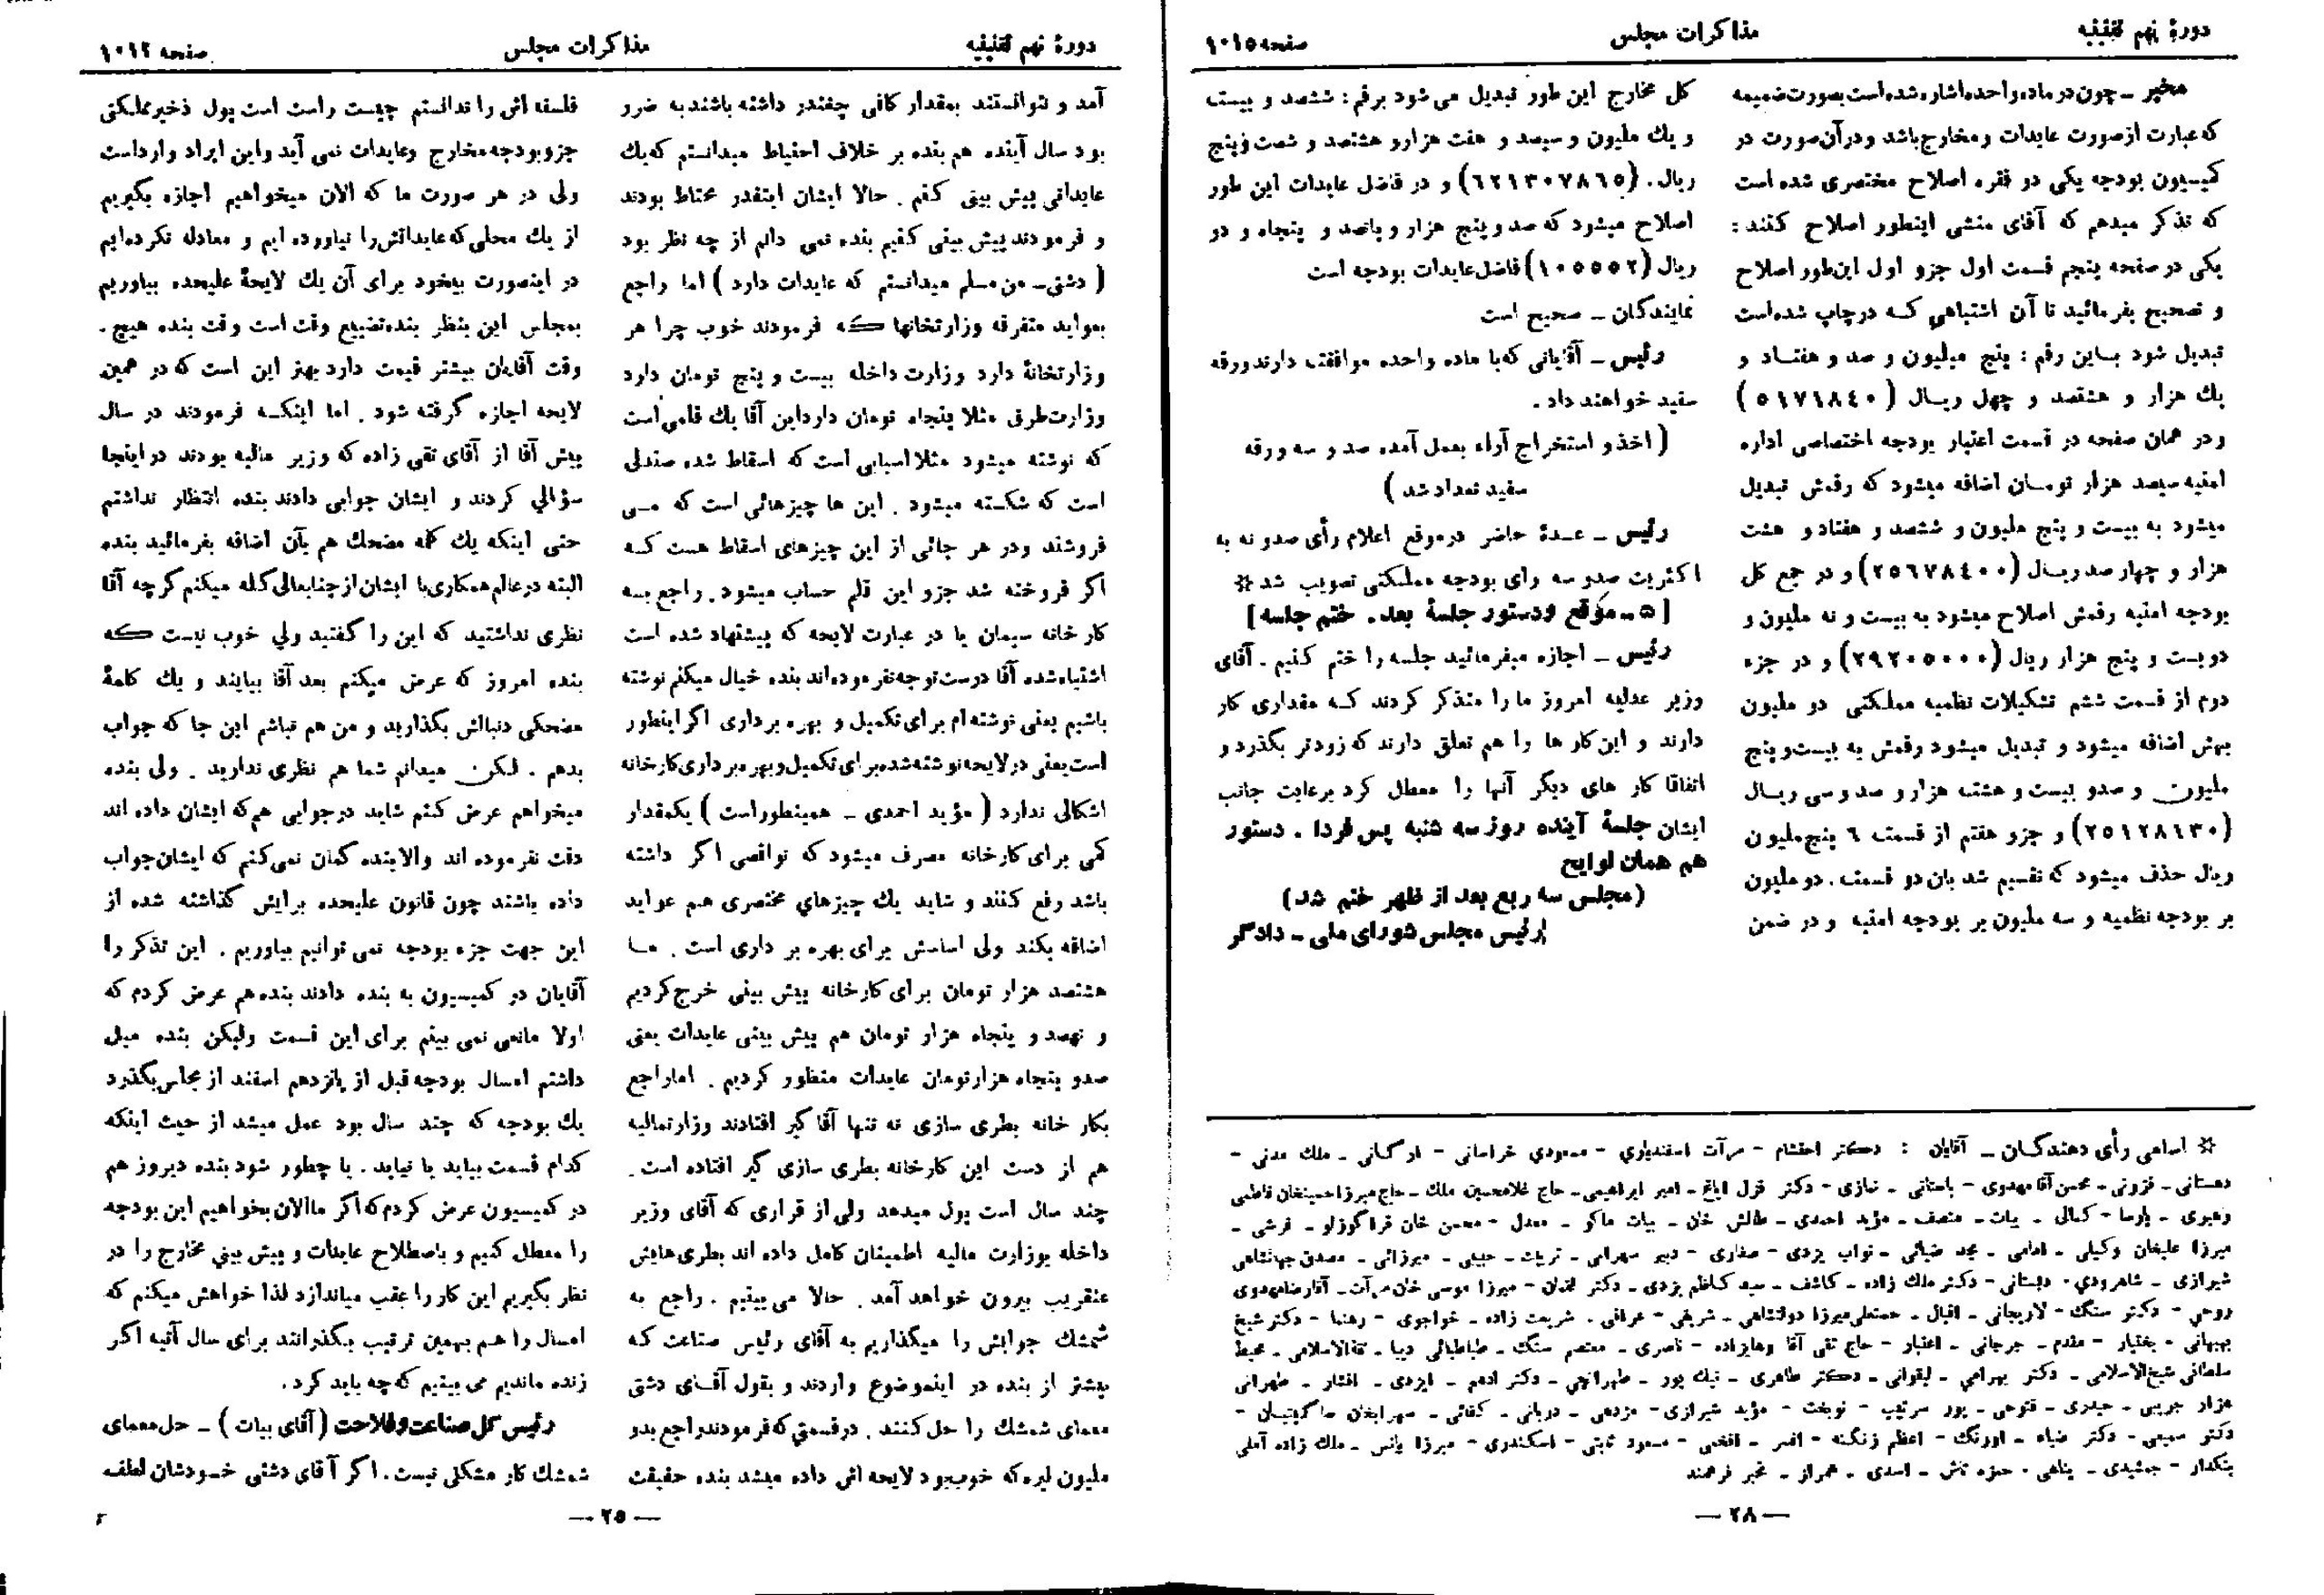 دورهٔ نهم تقنینیه
مذاکرات مجلس
صفحه ۱۰۱۵
مخبر ـ چون در ماده واحده اشاره شده است بصورت ضمیمه
که عبارت از صورت عایدات و مخارج باشد و در آن صورت در
کمیسیون بودجه یکی دو فقره اصلاح مختصری شده است
که تذکر میدهم که آقای منشی اینطور اصلاح کنند :
یکی در صفحه پنجم قسمت اول جزو اول این طور اصلاح
و تصحیح بفرمائید تا آن اشتباهی کـه در چاپ شده است
تبدیل شود بـاین رقم : پنج میلیون و صد و هفتـاد و
یك هزار و هشتصد و چهل ریـال (۵۱۷۱۸٤۰)
و در همان صفحه در قسمت اعتبار بودجه اختصاصی اداره
امنیه سیصد هزار تومـان اضافه میشود که رقمش تبدیل
میشود به بیست و پنج ملیون و ششصد و هفتاد و هشت
هزار و چهار صد ریـال (۲۵٦۷۸٤۰۰) و در جمع کل
بودجه امنیه رقمش اصلاح میشود به بیست و نه ملیون و
دویست و پنج هزار ریال (۲۹۲۰۵۰۰۰) و در جزء
دوم از قسمت ششم تشکیلات نظمیه مملکتی دو ملیون
بهش اضافه میشود و تبدیل میشود رقمش به بیست و پنج
ملیون و صدو بیست و هشت هزار و صد و سی ریـال
(۲۵۱۲۸۱۳۰) و جزو هفتم از قسمت ٦ پنج ملیون
ریال حذف میشود که تقسیم شد بان دو قسمت . دو ملیون
بر بودجه نظمیه و سه ملیون بر بودجه امنیه و در ضمن
کل مخارج این طور تبدیل می شود برقم : ششصد و بیست
و یك ملیون و سیصد و هفت هزار و هشتصد و شصت و پنج
ریال . (٦۲۱۳۰۷۸٦۵) و در فاضل عایدات این طور
اصلاح میشود که صد و پنج هزار و پانصد و پنجاه و دو
ریال (۱۰۵۵۵۲) فاضل عایدات بودجه است
نمایندگان ـ صحیح است
رئیس ـ آقایانی که با ماده واحده موافقت دارند ورقه
سفید خواهند داد .
(اخذ و استخراج آراء بعمل آمده صد و سه ورقه
سفید تعداد شد)
رئیس ـ عـدهٔ حاضر در موقع اعلام رأی صدو نه به
اکثریت صدو سه رای بودجه مملکتی تصویب شد *
[۵ ـ موقع و دستور جلسهٔ بعد . ختم جلسه]
رئیس ـ اجازه میفرمائید جلسه را ختم کنیم . آقای
وزیر عدلیه امروز ما را متذکر کردند کـه مقداری کار
دارند و این کار ها را هم تعلق دارند که زودتر بگذرد و
اتفاقا کار های دیگر آنها را معطل کرد برعایت جانب
ایشان جلسهٔ آینده روز سه شنبه پس فردا . دستور
هم همان لوایح
(مجلس سه ربع بعد از ظهر ختم شد)
رئیس مجلس شورای ملی ـ دادگر
* اسامی رأی دهندگـان ـ آقایان : دکتر احتشام - مرآت اسفندیاری - مسعودی خراسانی - ارگانی ـ ملك مدنی -
دهستانی ـ قزونی ـ محسن آقا مهدوی - باستانی ـ نیازی - دکتر قزل ایاغ ـ امیر ابراهیمی ـ حاج غلامحسین ملك ـ حاج میرزا حسینخان فاطمی
رهبری ـ پارسا - کمالی ـ بیات ـ منصف ـ مؤید احمدی ـ طالش خان ـ بیات ماکو ـ معدل - محسن خان قراگوزلو ـ قرشی -
میرزا علیخان وکیلی ـ امامی ـ محمد ضیائی ـ نواب یزدی - صفاری - دبیر سهرابی ـ تربیت ـ حبیبی ـ میرزائی ـ مصدق جهانشاهی
شیرازی ـ شاهرودی ـ دبستانی - دکتر ملك زاده ـ کاشف ـ سید کاظم یزدی ـ دکتر لقمان - میرزا موسی خان مرآت ـ آقا رضا مهدوی
روحی - دکتر سنگ - لاریجانی ـ اقبال ـ حشمتعلی میرزا دولتشاهی ـ شریفی - عراقی . شریعت زاده ـ خواجوی - رهنما - دکتر شیخ
بهبهانی ـ بختیار - مقدم ـ جرجانی ـ اعتبار - حاج تقی آقا وهابزاده - ناصری ـ معتصم سنگ ـ طباطبائی دیبا ـ ثقةالاسلامی ـ محیط
سلطانی شیخ‌الاسلامی ـ دکتر بهرامی ـ لیقوانی ـ دکتر طاهری ـ نیك پور ـ طهرانچی ـ دکتر ادهم ـ ایزدی ـ افشار ـ طهرانی
هزار جریبی ـ حیدری ـ فتوحی ـ پور سرتیپ - نوبخت - مؤید شیرازی - مژدهی ـ دربانی ـ کفائی ـ سهرابخان ساگینیان -
دکتر سمیعی - دکتر ضیاء ـ اورنگ - اعظم زنگنه - افسر ـ افخمی - مسعود ثابتی - اسکندری - میرزا یانس ـ ملك زاده آملی
بنکدار - جمشیدی ـ پناهی . حمزه تاش ـ اسدی ـ همراز ـ مخبر فرهمند
— ۲۸ —
دورهٔ نهم تقنینیه
مذاکرات مجلس
صفحه ۱۰۱۲
آمد و نتوانستند بمقدار کافی چغندر داشته باشند به ضرر
بود سال آینده هم بنده بر خلاف احتیاط میدانستم که یك
عایداتی پیش بینی کنم . حالا ایشان اینقدر محتاط بودند
و فرمودند پیش بینی کنیم بنده نمی دانم از چه نظر بود
(دشتی ـ من مسلم میدانستم که عایدات دارد) اما راجع
بعواید متفرقه وزارتخانها که فرمودند خوب چرا هر
وزارتخانهٔ دارد وزارت داخله بیست و پنج تومان دارد
وزارت طرق مثلا پنجاه تومان دارد این آقا یك قلمی است
که نوشته میشود مثلا اسبابی است که اسقاط شده صندلی
است که شکسته میشود . این ها چیزهائی است که مـی
فروشند و در هر جائی از این چیزهای اسقاط هست کـه
اگر فروخته شد جزو این قلم حساب میشود . راجع بـه
کارخانه سیمان یا در عبارت لایحه که پیشنهاد شده است
اشتباه شده آقا درست توجه نفرموده‌اند بنده خیال میکنم نوشته
باشیم یعنی نوشته ام برای تکمیل و بهره برداری اگر اینطور
است یعنی در لایحه نوشته شده برای تکمیل و بهره برداری کارخانه
اشکالی ندارد (مؤید احمدی ـ همینطور است) یکمقدار
کمی برای کارخانه مصرف میشود که نواقصی اگر داشته
باشد رفع کنند و شاید یك چیزهای مختصری هـم عواید
اضافه بکند ولی اساسش برای بهره برداری است . مـا
هشتصد هزار تومان برای کارخانه پیش بینی خرج کردیم
و نهصد و پنجاه هزار تومان هم پیش بینی عایدات یعنی
صدو پنجاه هزار تومان عایدات منظور کردیم . اما راجع
بکار خانه بطری سازی نه تنها آقا گیر افتادند وزارت مالیه
هم از دست این کارخانه بطری سازی گیر افتاده است .
چند سال است پول میدهد ولی از قراری که آقای وزیر
داخله بوزارت مالیه اطمینان کامل داده اند بطری هایش
عنقریب بیرون خواهد آمد . حالا می بینیم . راجع به
شمشك جوابش را میگذاریم به آقای رئیس صناعت که
بیشتر از بنده در اینموضوع واردند و بقول آقـای دشتی
معمای شمشك را حل کنند . در قسمتی که فرمودند راجع بدو
ملیون لیره که خوب بود لایحه اش داده میشد بنده حقیقت
فلسفه اش را ندانستم چیست راست است پول ذخیره مملکتی
جزو بودجه مخارج و عایدات نمی آید و این ایراد وارد است
ولی در هر صورت ما که الان میخواهیم اجازه بگیریم
از یك محلی که عایداتش را نیاورده ایم و معادله نکرده‌ایم
در اینصورت بیخود برای آن یك لایحهٔ علیحده بیاوریم
بمجلس این بنظر بنده تضییع وقت است وقت بنده هیچ .
وقت آقایان بیشتر قیمت دارد بهتر این است که در همین
لایحه اجازه گرفته شود . اما اینکـه فرمودند در سال
پیش آقا از آقای تقی زاده که وزیر مالیه بودند در اینجا
سؤالی کردند و ایشان جوابی دادند بنده انتظار نداشتم
حتی اینکه یك کلمه مضحك هم بآن اضافه بفرمائید بنده
البته در عالم همکاری با ایشان از جنابعالی گله میکنم گرچه آقا
نظری نداشتید که این را گفتید ولی خوب نیست که
بنده امروز که عرض میکنم بعد آقا بیایند و یك کلمهٔ
مضحکی دنبالش بگذارید و من هم نباشم این جا که جواب
بدهم . لکن میدانم شما هم نظری ندارید . ولی بنده
میخواهم عرض کنم شاید در جوابی هم که ایشان داده اند
دقت نفرموده اند والا بنده گمان نمی کنم که ایشان جواب
داده باشند چون قانون علیحده برایش گذاشته شده از
این جهت جزء بودجه نمی توانیم بیاوریم . این تذکر را
آقایان در کمیسیون به بنده دادند بنده هم عرض کردم که
اولا مانعی نمی بینم برای این قسمت ولیکن بنده میل
داشتم امسال بودجه قبل از پانزدهم اسفند از مجلس بگذرد
یك بودجه که چند سال بود عمل میشد از حیث اینکه
کدام قسمت بیاید یا نیاید . یا چطور شود بنده دیروز هم
در کمیسیون عرض کردم که اگر ما الان بخواهیم این بودجه
را معطل کنیم و باصطلاح عایدات و پیش بینی مخارج را در
نظر بگیریم این کار را عقب میاندازد لذا خواهش میکنم که
امسال را هـم بهمین ترتیب بگذرانند برای سال آتیه اگر
زنده ماندیم می بینیم که چه باید کرد .
رئیس کل صناعت و فلاحت (آقای بیات) ـ حل معمای
شمشك کار مشکلی نیست . اگر آقای دشتی خـودشان لطف
— ۲۵ —